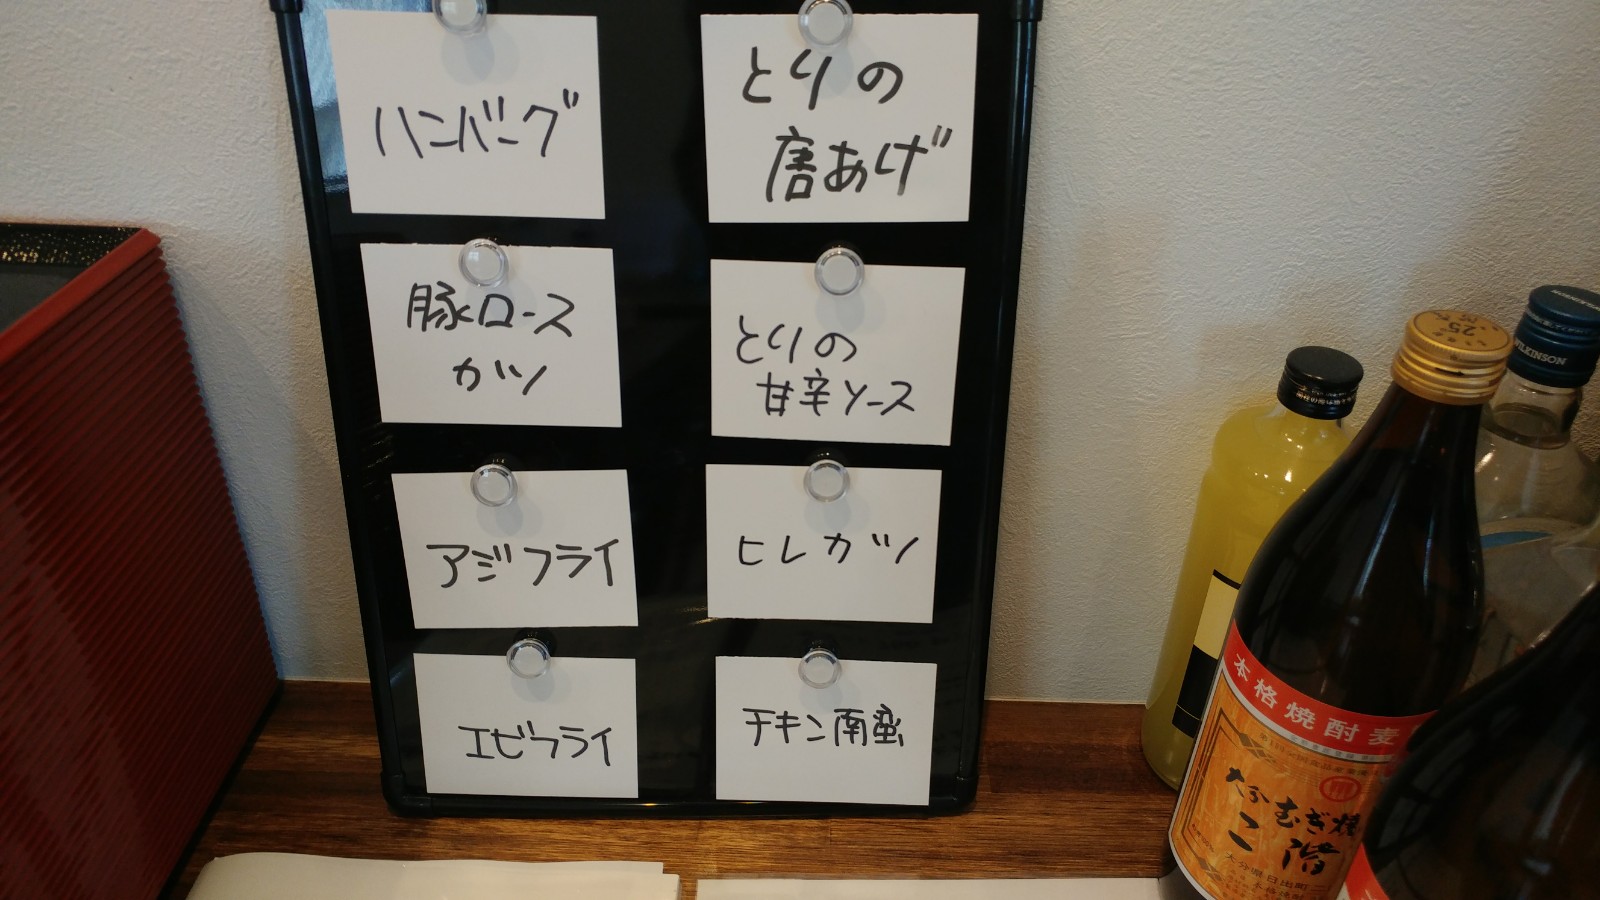 ハンバーグ
とりの
唐あげ
豚ロース
カツ
とりの
甘辛ソース
アジフライ
ヒレカツ
エビフライ
チキン南蛮
WILKINSON
25
本格焼酎麦
むぎ焼
二階
大分県日出町